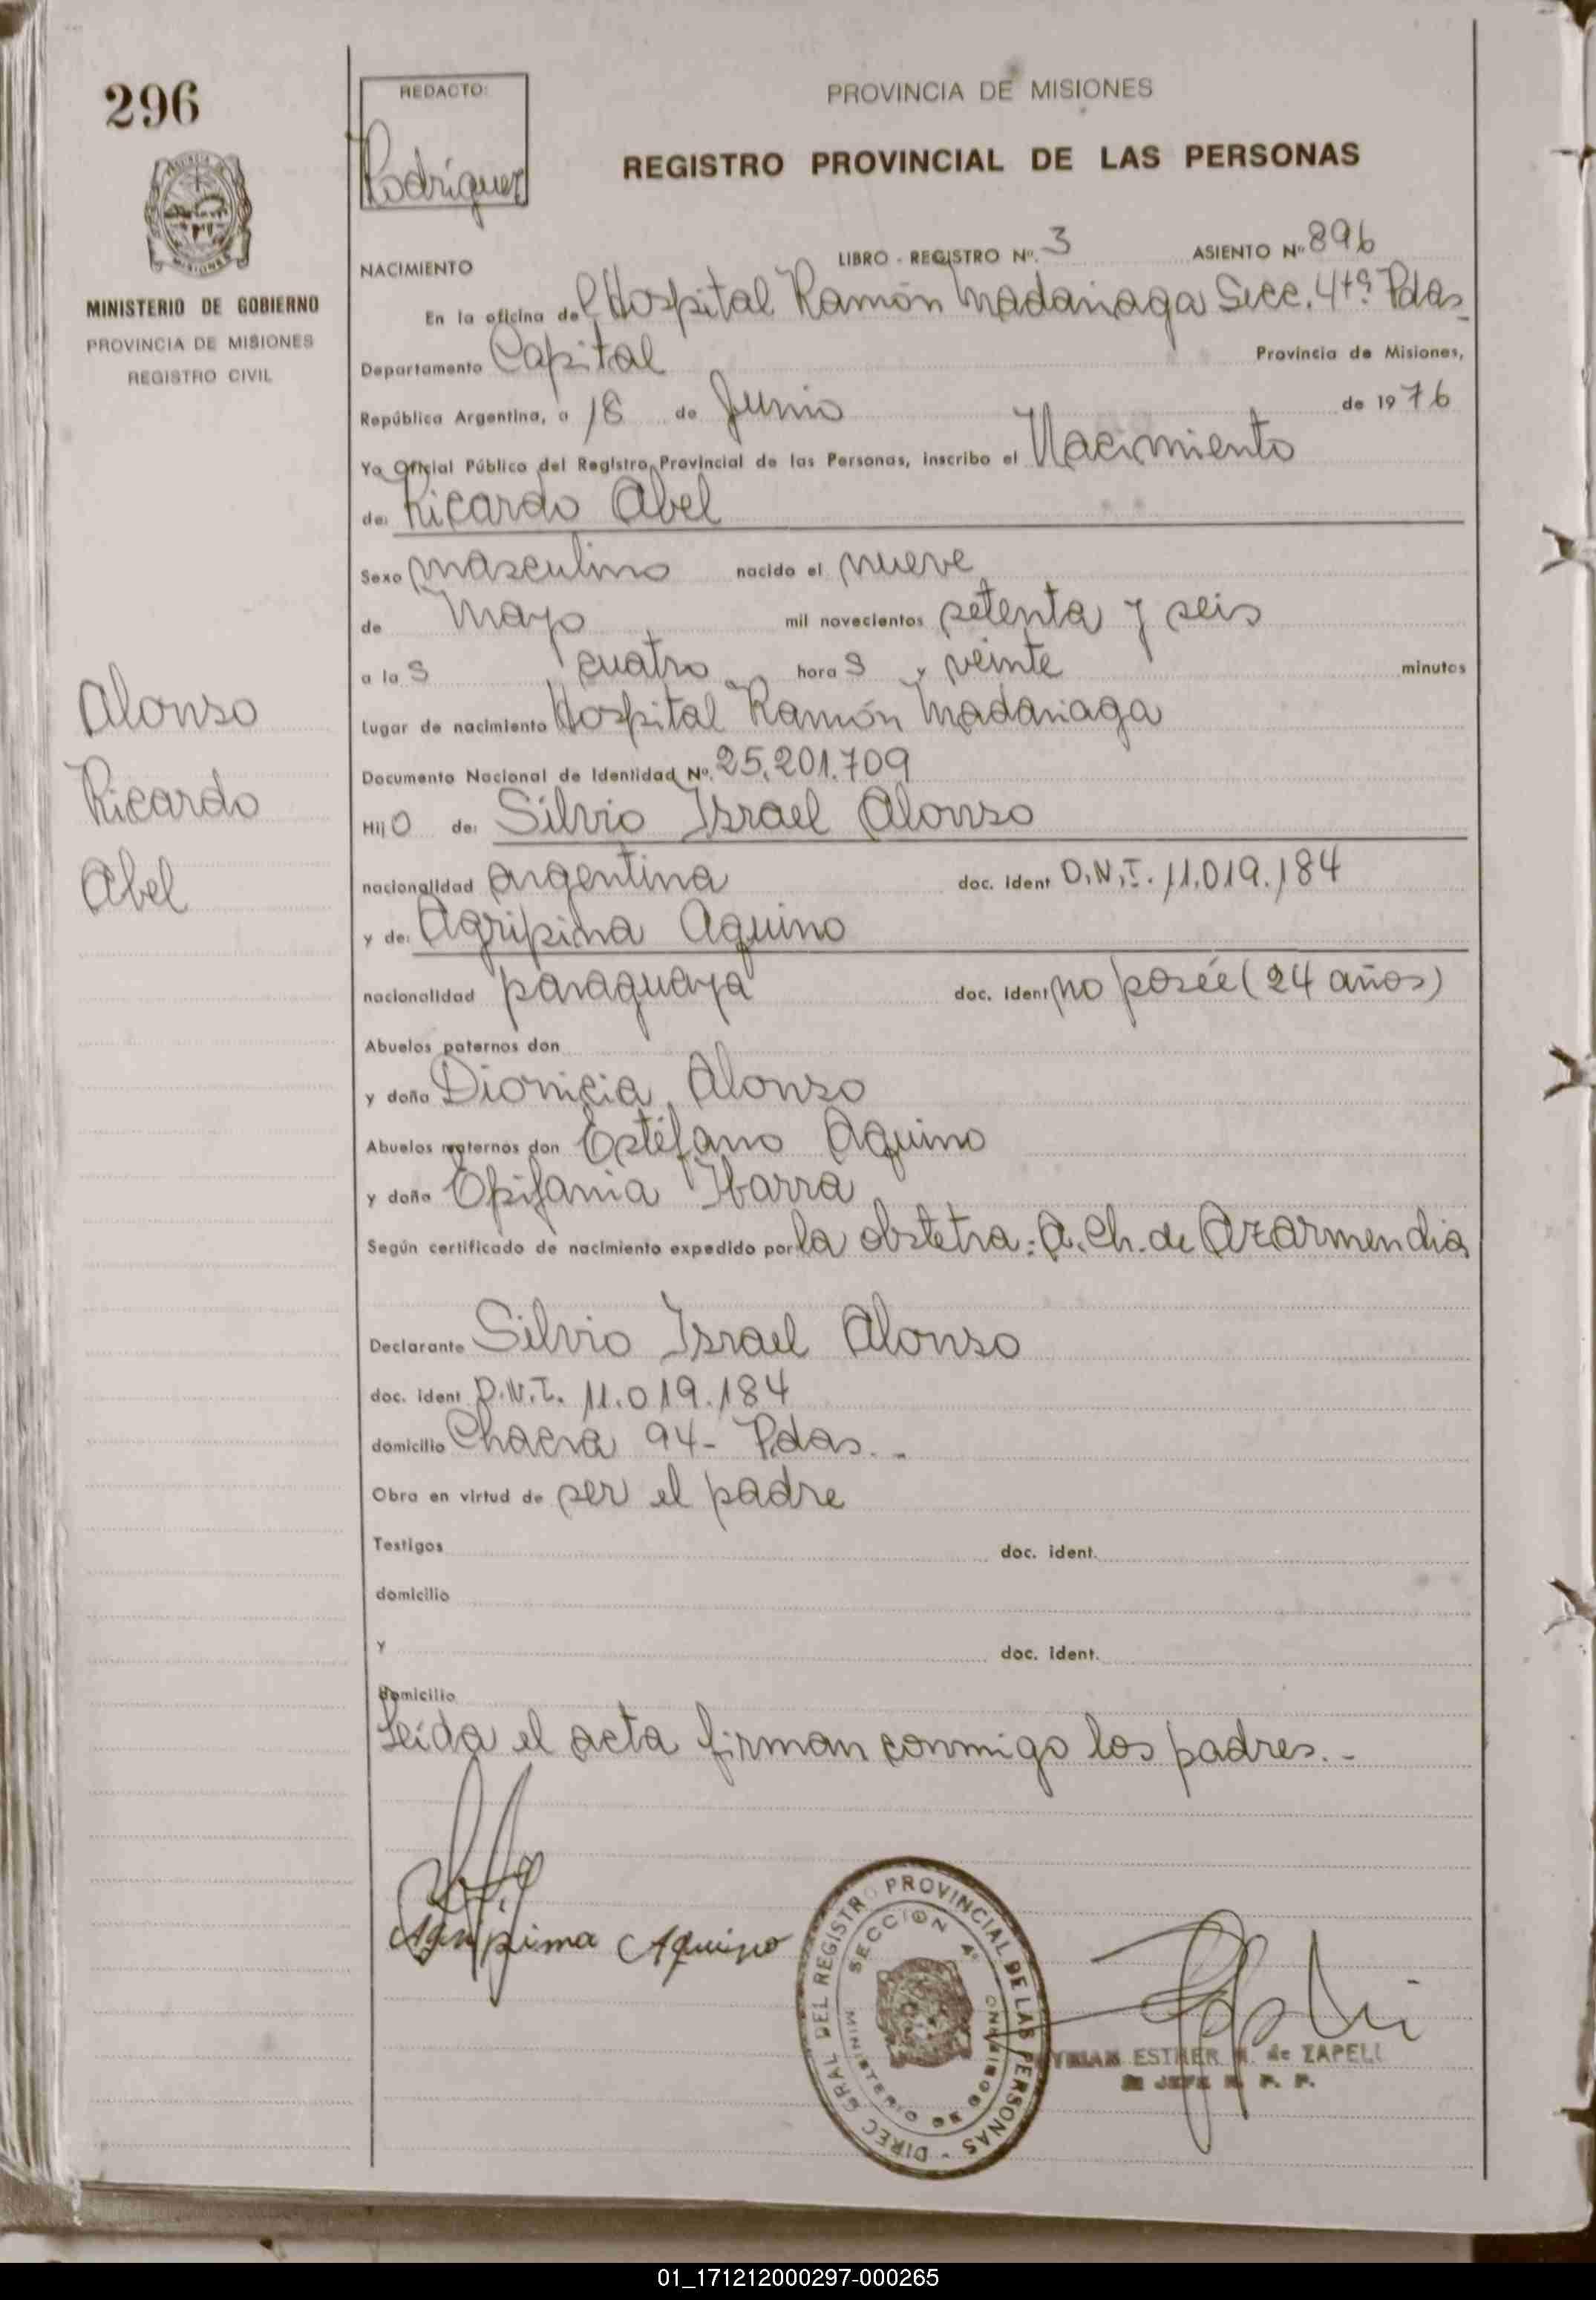 296
REDACTO:
Rodríguez
PROVINCIA DE MISIONES
REGISTRO PROVINCIAL DE LAS PERSONAS
MISIONES
MINISTERIO DE GOBIERNO
PROVINCIA DE MISIONES
REGISTRO CIVIL
NACIMIENTO LIBRO - REGISTRO Nº. 3 ASIENTO Nº 896
En la oficina del Hospital Ramón Madariaga Secc. 4ta Pdas
Departamento Capital Provincia de Misiones,
República Argentina, a 18 de Junio de 1976
Yo Oficial Público del Registro Provincial de las Personas, inscribo el Nacimiento
de: Ricardo Abel
Sexo masculino nacido el nueve
de Mayo mil novecientos setenta y seis
a las cuatro horas y veinte minutos
Lugar de nacimiento Hospital Ramón Madariaga
Documento Nacional de Identidad Nº. 25.201.709
Hijo de: Silvio Israel Alonso
nacionalidad argentina doc. ident D.N.I. 11.019.184
y de: Agripina Aquino
nacionalidad paraguaya doc. ident no posée (24 años)
Abuelos paternos don
y doña Dionicia Alonso
Abuelos maternos don Estéfano Aquino
y doña Epifania Ibarra
Según certificado de nacimiento expedido por la obstetra: A. Ch. de Azarmendia
Declarante Silvio Israel Alonso
doc. ident D.N.I. 11.019.184
domicilio Chacra 94- Pdas.-
Obra en virtud de ser el padre
Testigos doc. ident.
domicilio
Y doc. ident.
domicilio
Leída el acta firman conmigo los padres.-
Alonso
Ricardo
Abel
Agripina Aquino
DIREC. GRAL DEL REGISTRO PROVINCIAL DE LAS PERSONAS -
SECCION 4ª
MINISTERIO DE GOBIERNO
ESTHER de ZAPELI
JEFE R. P. P.
01_171212000297-000265